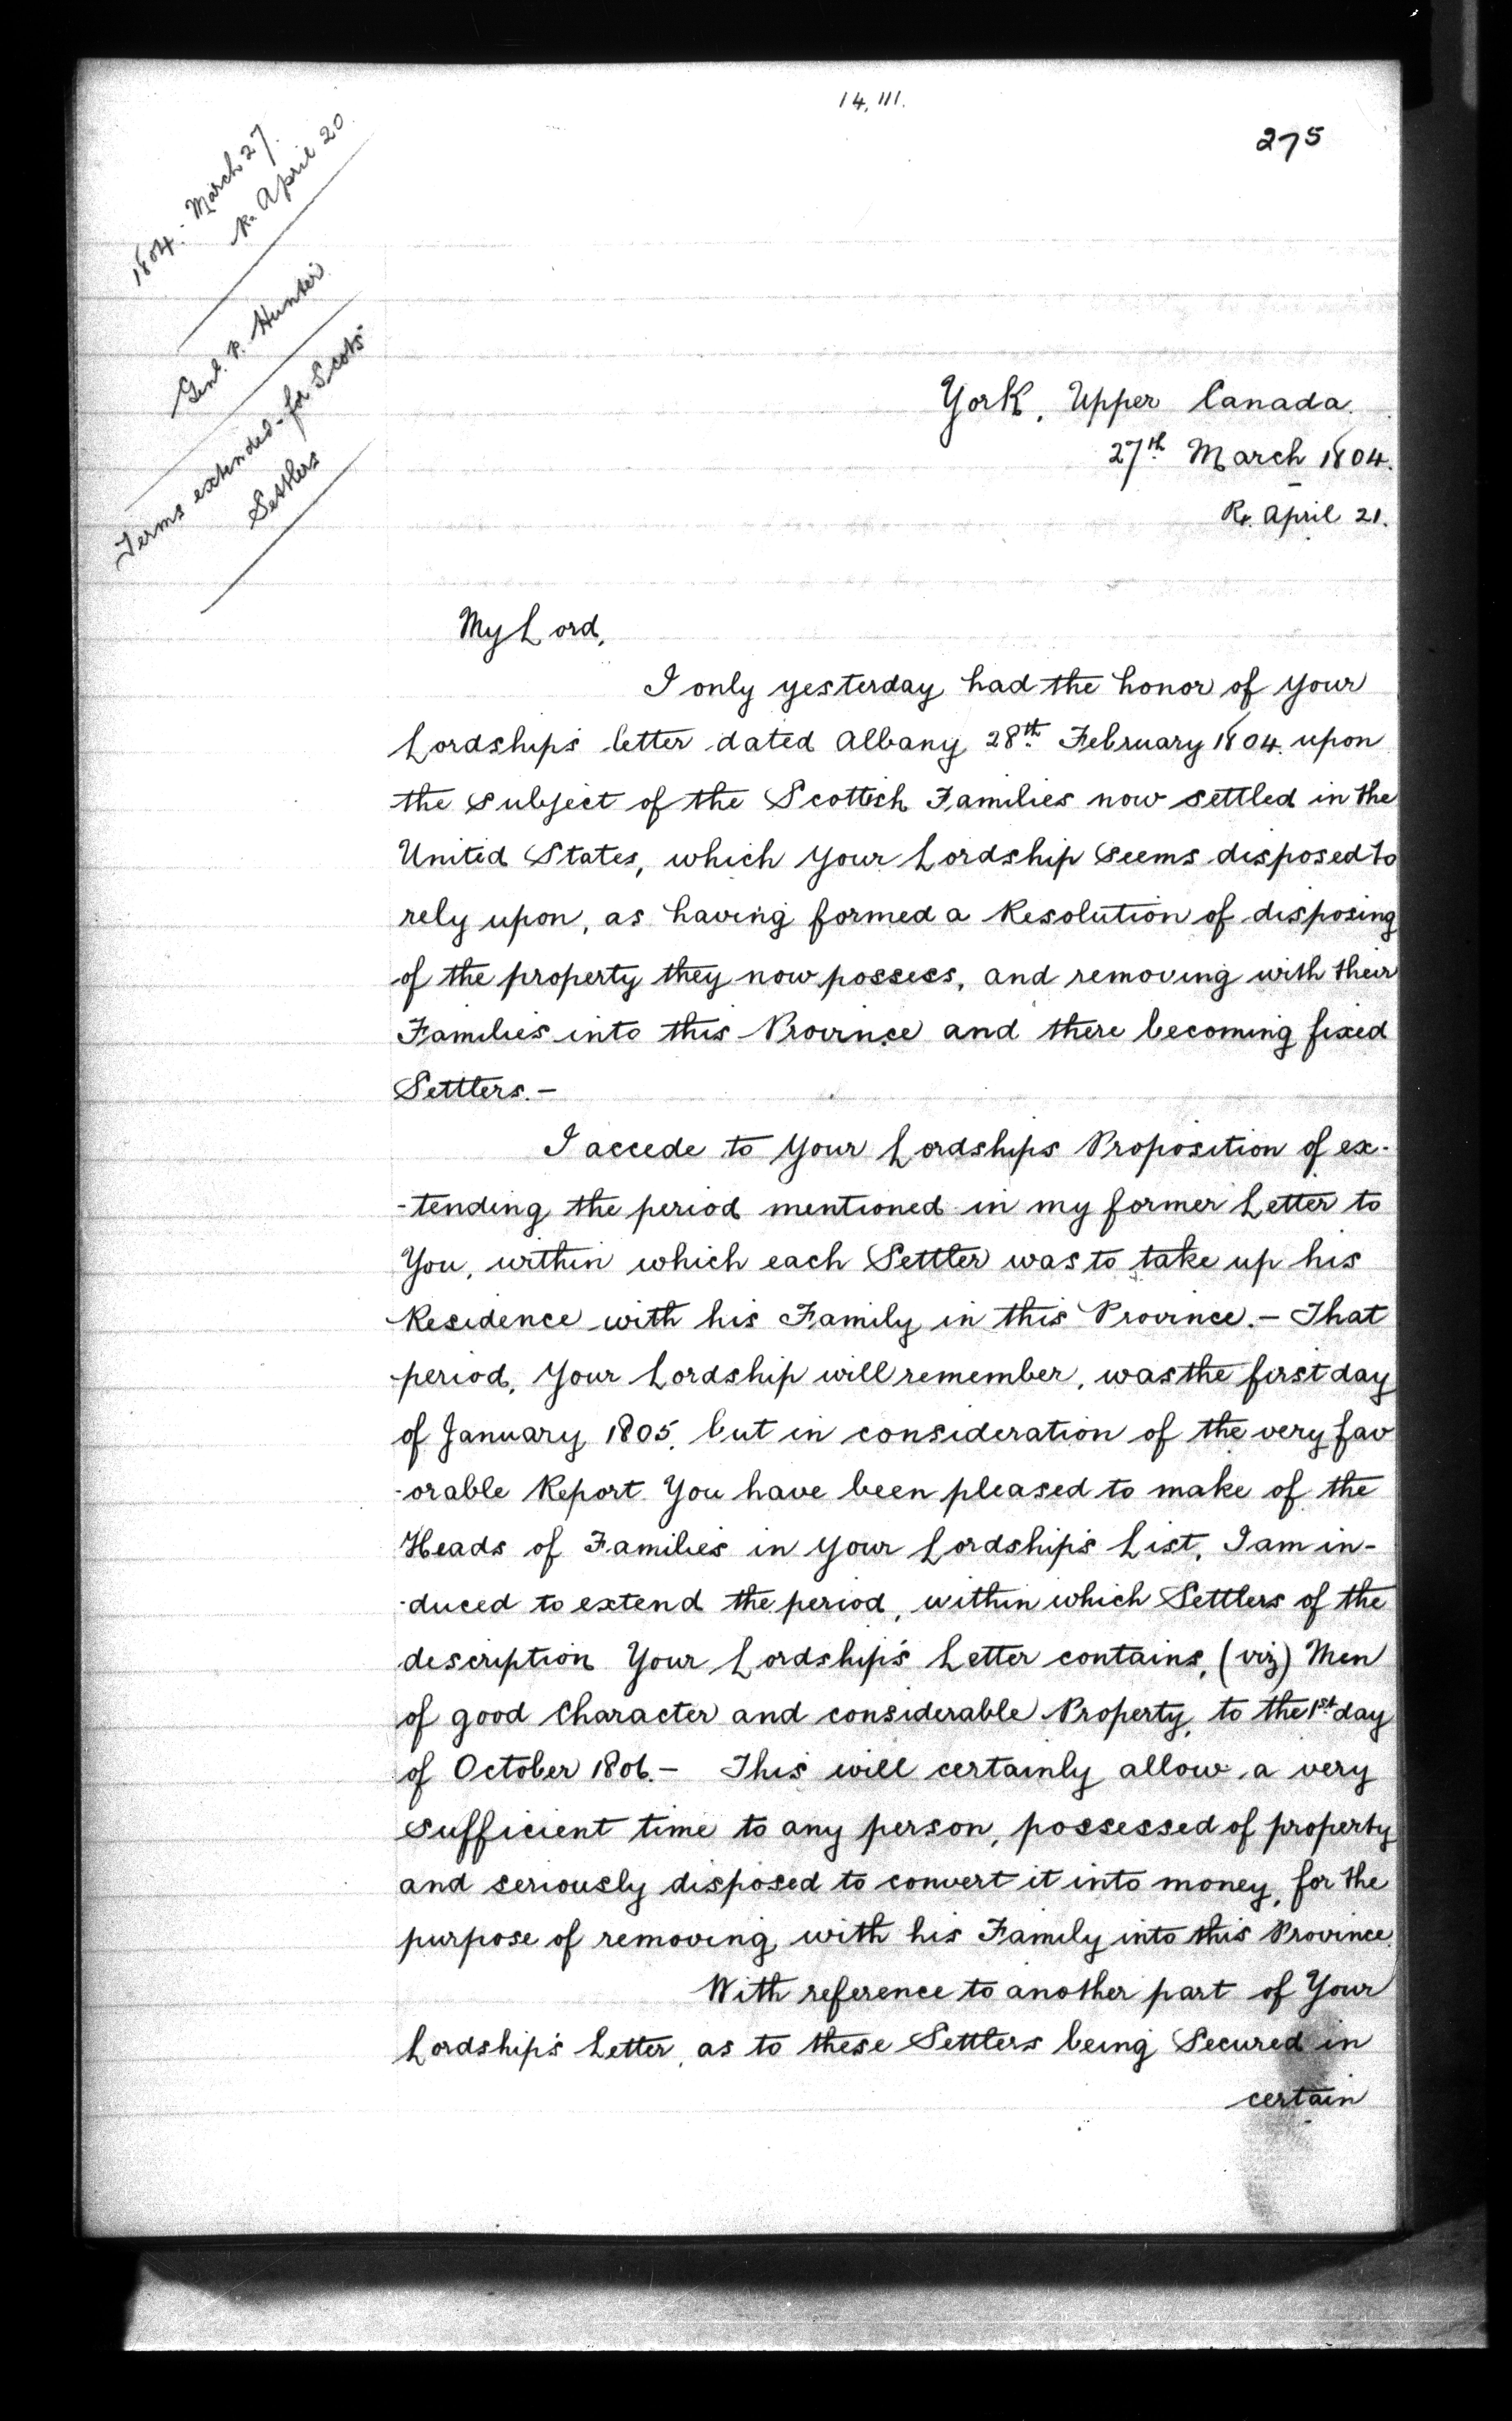 14, 111.
275
1804.- March 27.
R. April 20.
Genl. P. Hunter
Terms extended - for Scots
Settlers
York, Upper Canada.
27th March 1804.
Rx. April 21.
My Lord,
I only yesterday had the honor of your
Lordship's letter dated Albany 28th February 1804. upon
the subject of the Scottish Families now settled in the
United States, which your Lordship seems disposed to
rely upon, as having formed a Resolution of disposing
of the property they now possess, and removing with their
Families into this Province and there becoming fixed
Settlers.-
I accede to Your Lordships Proposition of ex-
-tending the period mentioned in my former Letter to
You, within which each Settler was to take up his
Residence with his Family in this Province.- That
period, Your Lordship will remember, was the first day
of January 1805, but in consideration of the very fav
-orable Report You have been pleased to make of the
Heads of Families in Your Lordship's List, I am in-
-duced to extend the period, within which Settlers of the
description Your Lordship's Letter contains, (viz) Men
of good Character and considerable Property, to the 1st day
of October 1806.- This will certainly allow a very
sufficient time to any person, possessed of property
and seriously disposed to convert it into money, for the
purpose of removing with his Family into this Province.
With reference to another part of Your
Lordship's Letter, as to these Settlers being Secured in
certain